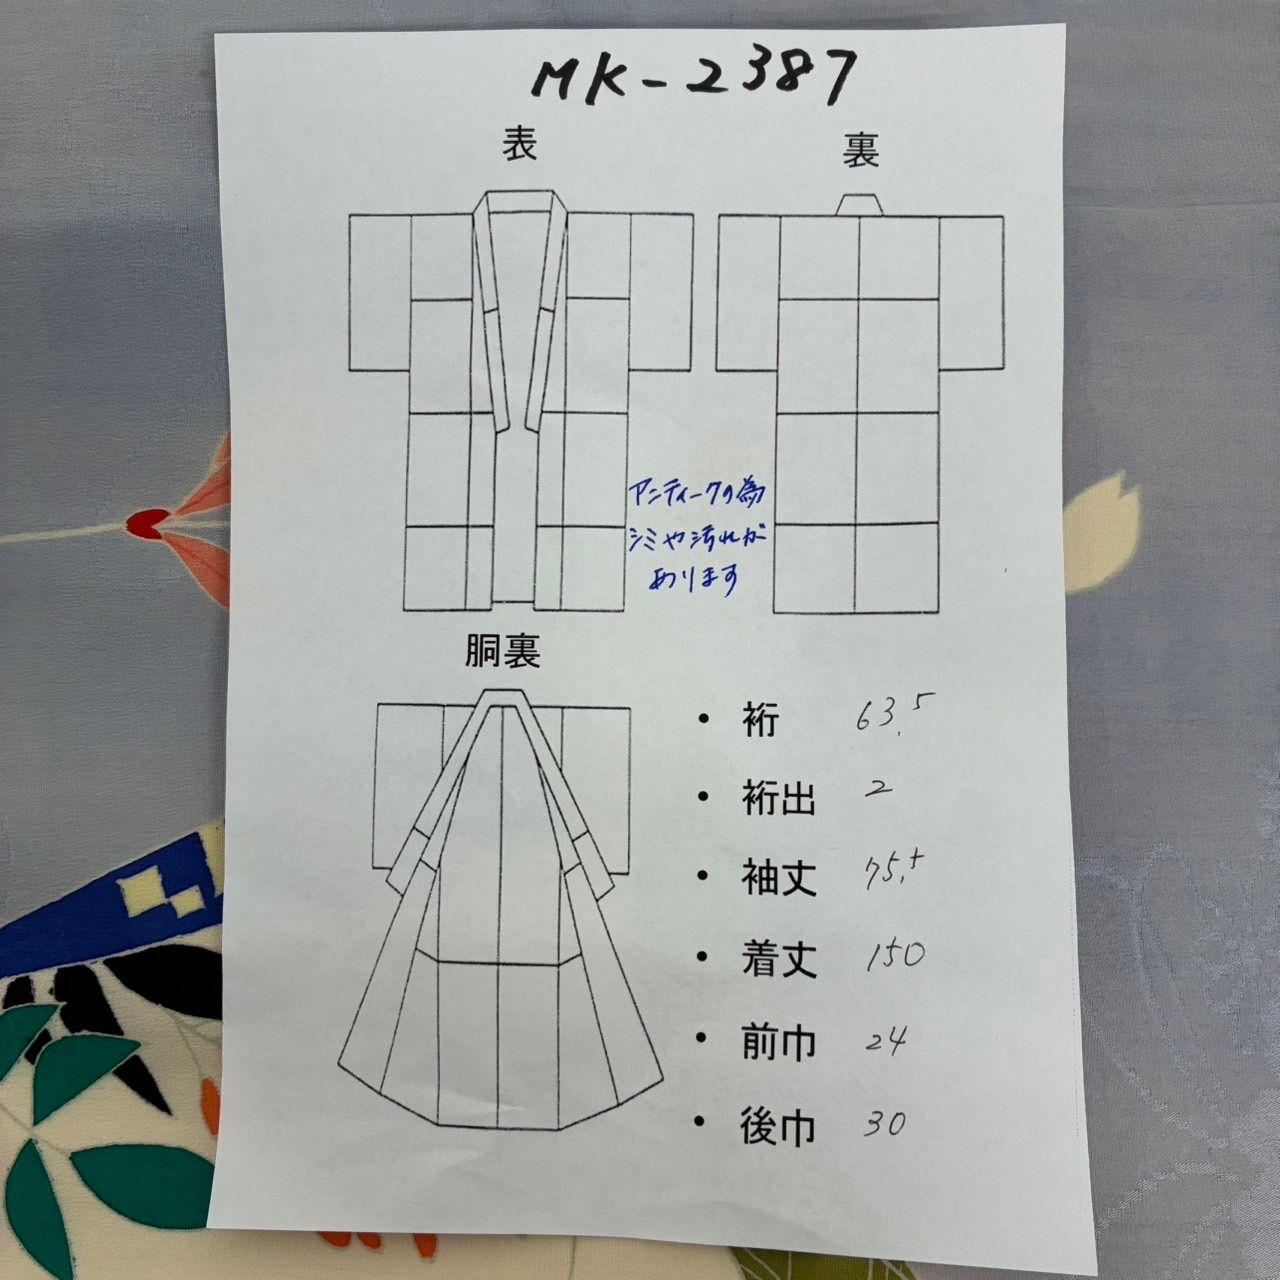 MK-2387
表
裏
アンティークの為
シミや汚れが
あります
胴裏
・ 裄 63.5
・ 裄出 2
・ 袖丈 75.5
・ 着丈 150
・ 前巾 24
・ 後巾 30